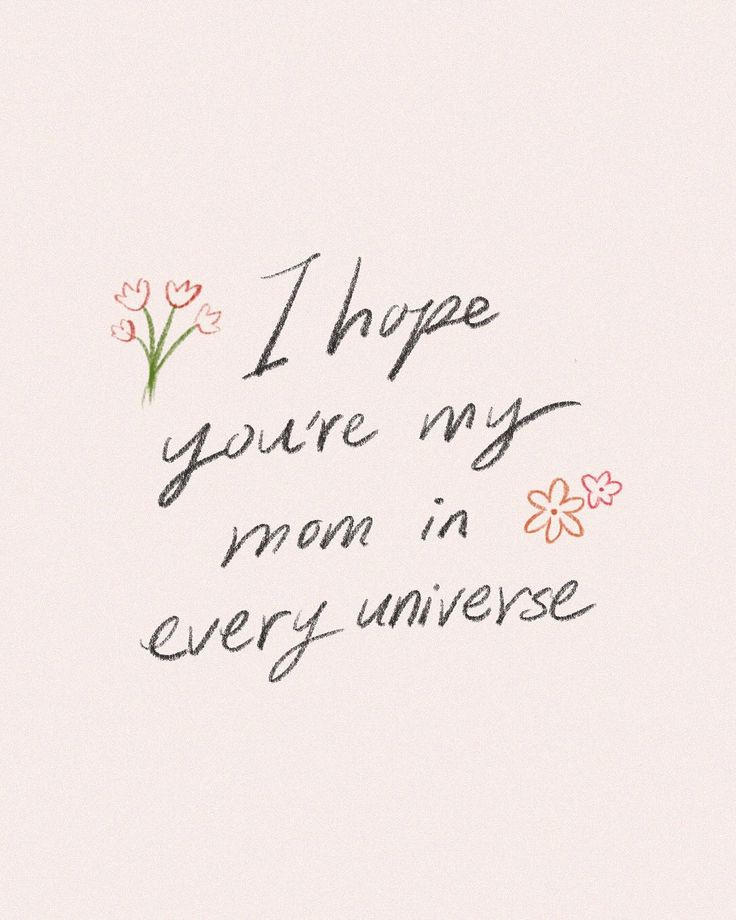 I hope
you're my
mom in
every universe